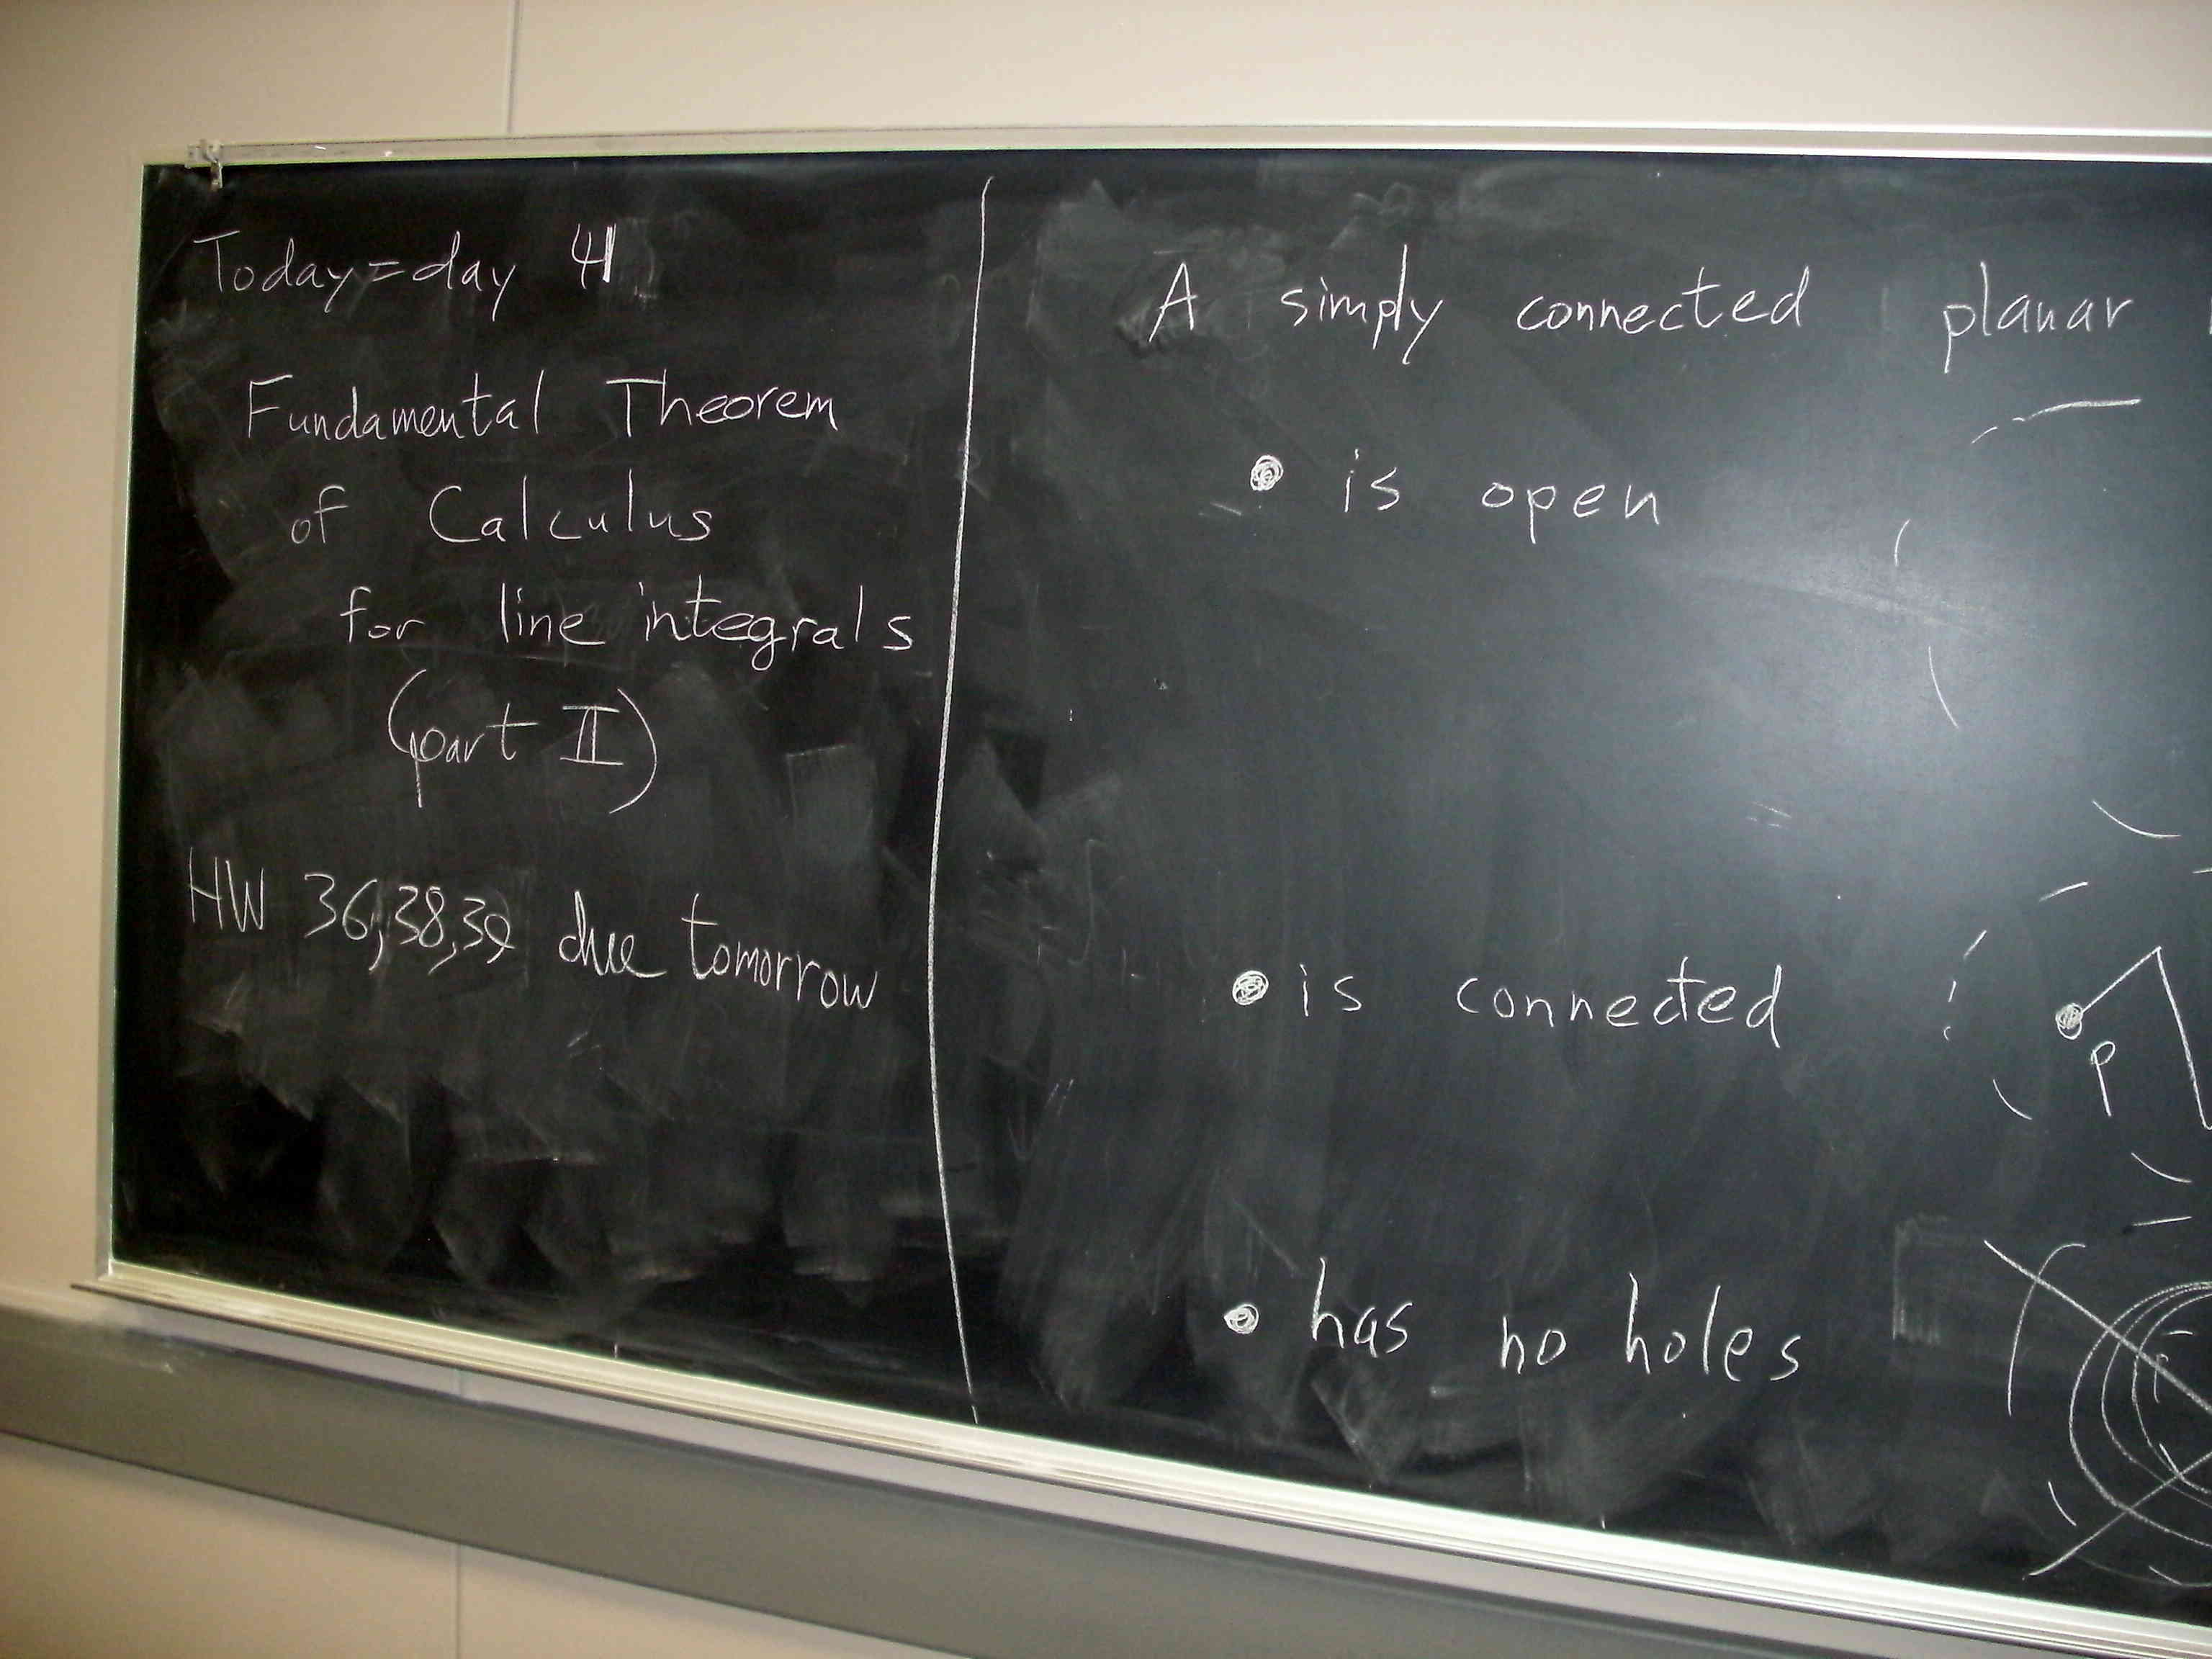 Today=day 41
Fundamental Theorem
of Calculus
for line integrals
(part II)
HW 36,38,39 due tomorrow
A simply connected planar
• is open
• is connected
p
• has no holes